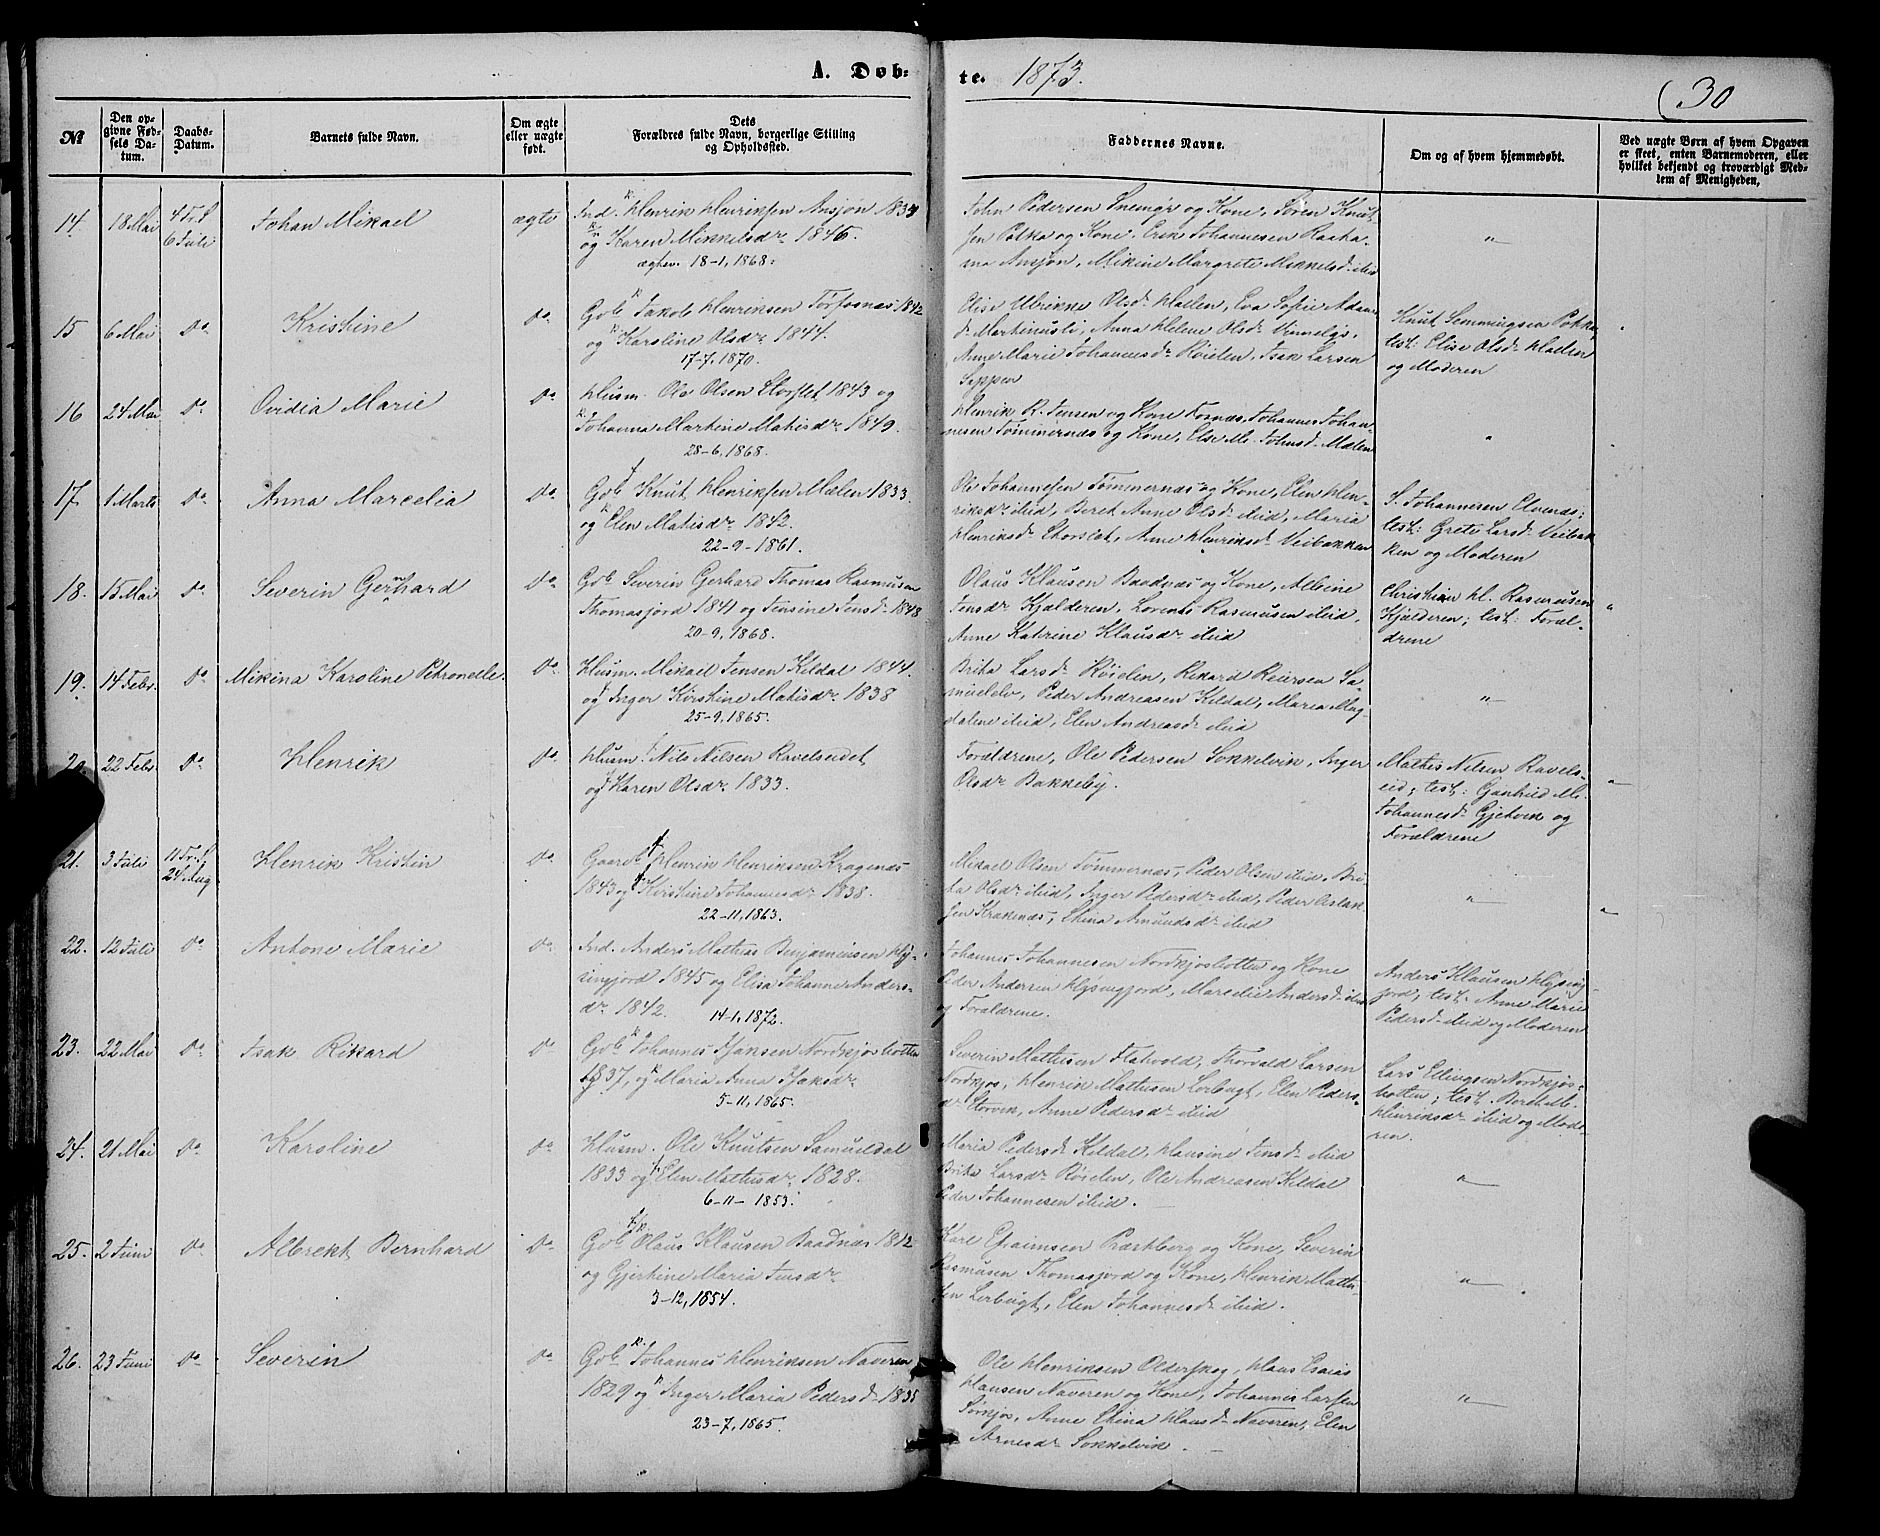 A. Døb-
te. 1873.
30
№
Den op-
givne Fød-
sels Da-
tum.
Daabs-
Datum.
Barnets fulde Navn.
Om ægte
eller uægte
født.
Dets
Forældres fulde Navn, borgerlige Stilling
og Opholdssted.
Faddernes Navne.
Om og af hvem hjemmedøbt.
Ved uægte Børn af hvem Opgaven
er skeet, enten Barnemoderen, eller
hvilket bekjendt og troværdigt Med-
lem af Menigheden.
14. 18 Mai 4 Tr. S
6 Juli
Johan Mikael
ægte
Ind. Henrik Henriksen Ansjøn 1834
og Karen Mikkelsdr. 1846.
18-1, 1868.
John Pedersen Snemyr og Kone, Søren Knut
sen Polka og Kone. Erik Johannesen
Ansjøn, Mikine Margrete Mikkelsd. ibid
"
15 6 Mai do
Kristine
do.
Gvb Jakob Henriksen Torfosnæs 1842
og Karoline Olsdr. 1844.
17-7, 1870.
Elise Ulrikke Olsdr. Hadlen, Eva Sofie Adam
d. Martinusli, Anna Helene Olsdr.
Anne Marie Johannesdr. Røielen, Isak Larsen
Seppen
Knut Semmingsen Pokka,
test: Elise Olsdr.
og Moderen
16 24 Mai do
Ovidia Marie
do
Husm. Ole Olsen Storslet 1843 og
Johanna Martine Matisdr. 1849.
28-6, 1868.
Henrik R. Jensen og Kone Fornæs, Johannes Johan-
nesen Tømmernæs og Kone, Else M. Johnsd. Mælen
"
17. 1 Marts do
Anna Marcelia
do.
Gvb Knut Henriksen Mælen 1833.
og Elen Matisdr. 1842.
22-9-1861.
Ole Johannesen Tømmernæs og Kone, Elen Hen-
riksdr. ibid, Beret Anne Olsdr. ibid, Maria
Henriksdr. Storslet, Anne Henriksdr. Veibakken
S. Johannesen Elvenæs;
test: Grete Larsd. Veibak
ken og Moderen
18. 15 Mai do
Severin Gernhard
do.
Gvb Severin Gerhard Thomas Rasmusen
Thomasjord 1841 og Jensine Jensd. 1848
20-9, 1868.
Olaus Klausen Baadnæs og Kone, Albrine
Jensdr. Kjælderen, Lorents Rasmusen ibid,
Anne Katrine Klausdr. ibid
Christian Hl. Rasmusen
Kjælderen; test: Foræl-
drene
"
19. 14 Febr. do
Mikina Karoline Petronelle.
do.
Husm. Mikael Jensen Kildal 1844.
og Inger Kirstine Matisdr. 1838
25-9, 1865.
Brita Larsd. Røielen, Rikard Reiersen Sa-
muelelv, Peder Andreasen Kildal, Maria Mag-
dalene ibid, Elen Andreasdr. ibid
"
20. 22 Febr. do
Henrik
do.
Husm. Nils Nilsen Ravelseidet
og Karen Olsdr. 1833.
Forældrene, Ole Pedersen Sokkelvik, Inger
Olsdr. Bakkeby.
Mathis Nilsen Ravels-
eid; test: Gunhild M.
Johannesd. Gjetvik og
Forældrene
"
21. 3 Juli 11 Tr. S
24 Aug
Henrik Kristin
do.
Gaardb. Henrik Henriksen Kragenæs
1843 og Kirstine Johannesdr. 1838.
22-11, 1863.
Mikael Olsen Tømmernæs, Peder Olsen ibid, Bri-
ta Olsdr. ibid, Inger Pedersdr. ibid, Peder
sen Krakenæs, Stina Amundsdr. ibid
"
"
22. 12 Juli do
Antone Marie
do.
Ind. Anders Mathias Benjaminsen Hy-
singjord 1845 og Elisa Johanne Anders-
dr. 1842.
14-1, 1872.
Johannes Johannesen Nordkjosbotten og Kone
Peder Andersen Hysingjord, Marcelie Andersd. ibid
og Forældrene.
Anders Klausen Hysing
jord, test: Anne Marie
Pedersd. ibid og Moderen
23. 22 Mai do
Isak Rikard
do
Gvb Johannes Isaksen Nordkjosbotten
1837, og Maria Anna Isaksdr.
5-11, 1865.
Severin Mathisen Flatvold, Thorvald Larsen
Nordkjos, Henrik Mathisen Lerbugt, Elen Peders-
dr. Storvik, Anne Pedersdr. ibid
Lars Ellingsen Nordkjos-
botten; test. Beret M.
Henriksdr. ibid og Mode-
ren.
24. 21 Mai do
Karoline
do
Husm. Ole Knutsen Samueldal
1833 og Elen Mathisdr. 1828.
6-11-1853.
Maria Pedersd. Kildal, Hansine Jensd. ibid
Brita Larsdr. Røielen, Ole Andreasen Kildal
Peder Johannesen ibid.
"
25. 2 Juni do
Albrekt Bernhard
do
Gvb Olaus Klausen Baadnæs 1812
og Gjertine Maria Jensdr.
3-12, 1854.
Karl Efraimsen Præstberg og Kone, Severin
Rasmusen Thomasjord og Kone, Henrik Mathi-
sen Lerbugt, Elen Johannesd. ibid.
"
26. 23 Juni do
Severin
do
Gvb Johannes Henriksen Naveren
1829 og Inger Maria Pedersd. 1835
23-7, 1865.
Ole Henriksen Olderskog, Hans Esaias
Hansen Naveren og Kone, Johannes Larsen
Sørkjos, Anne Stina Hansdr. Naveren, Elen
Arnesdr. Sokkelvik.
"